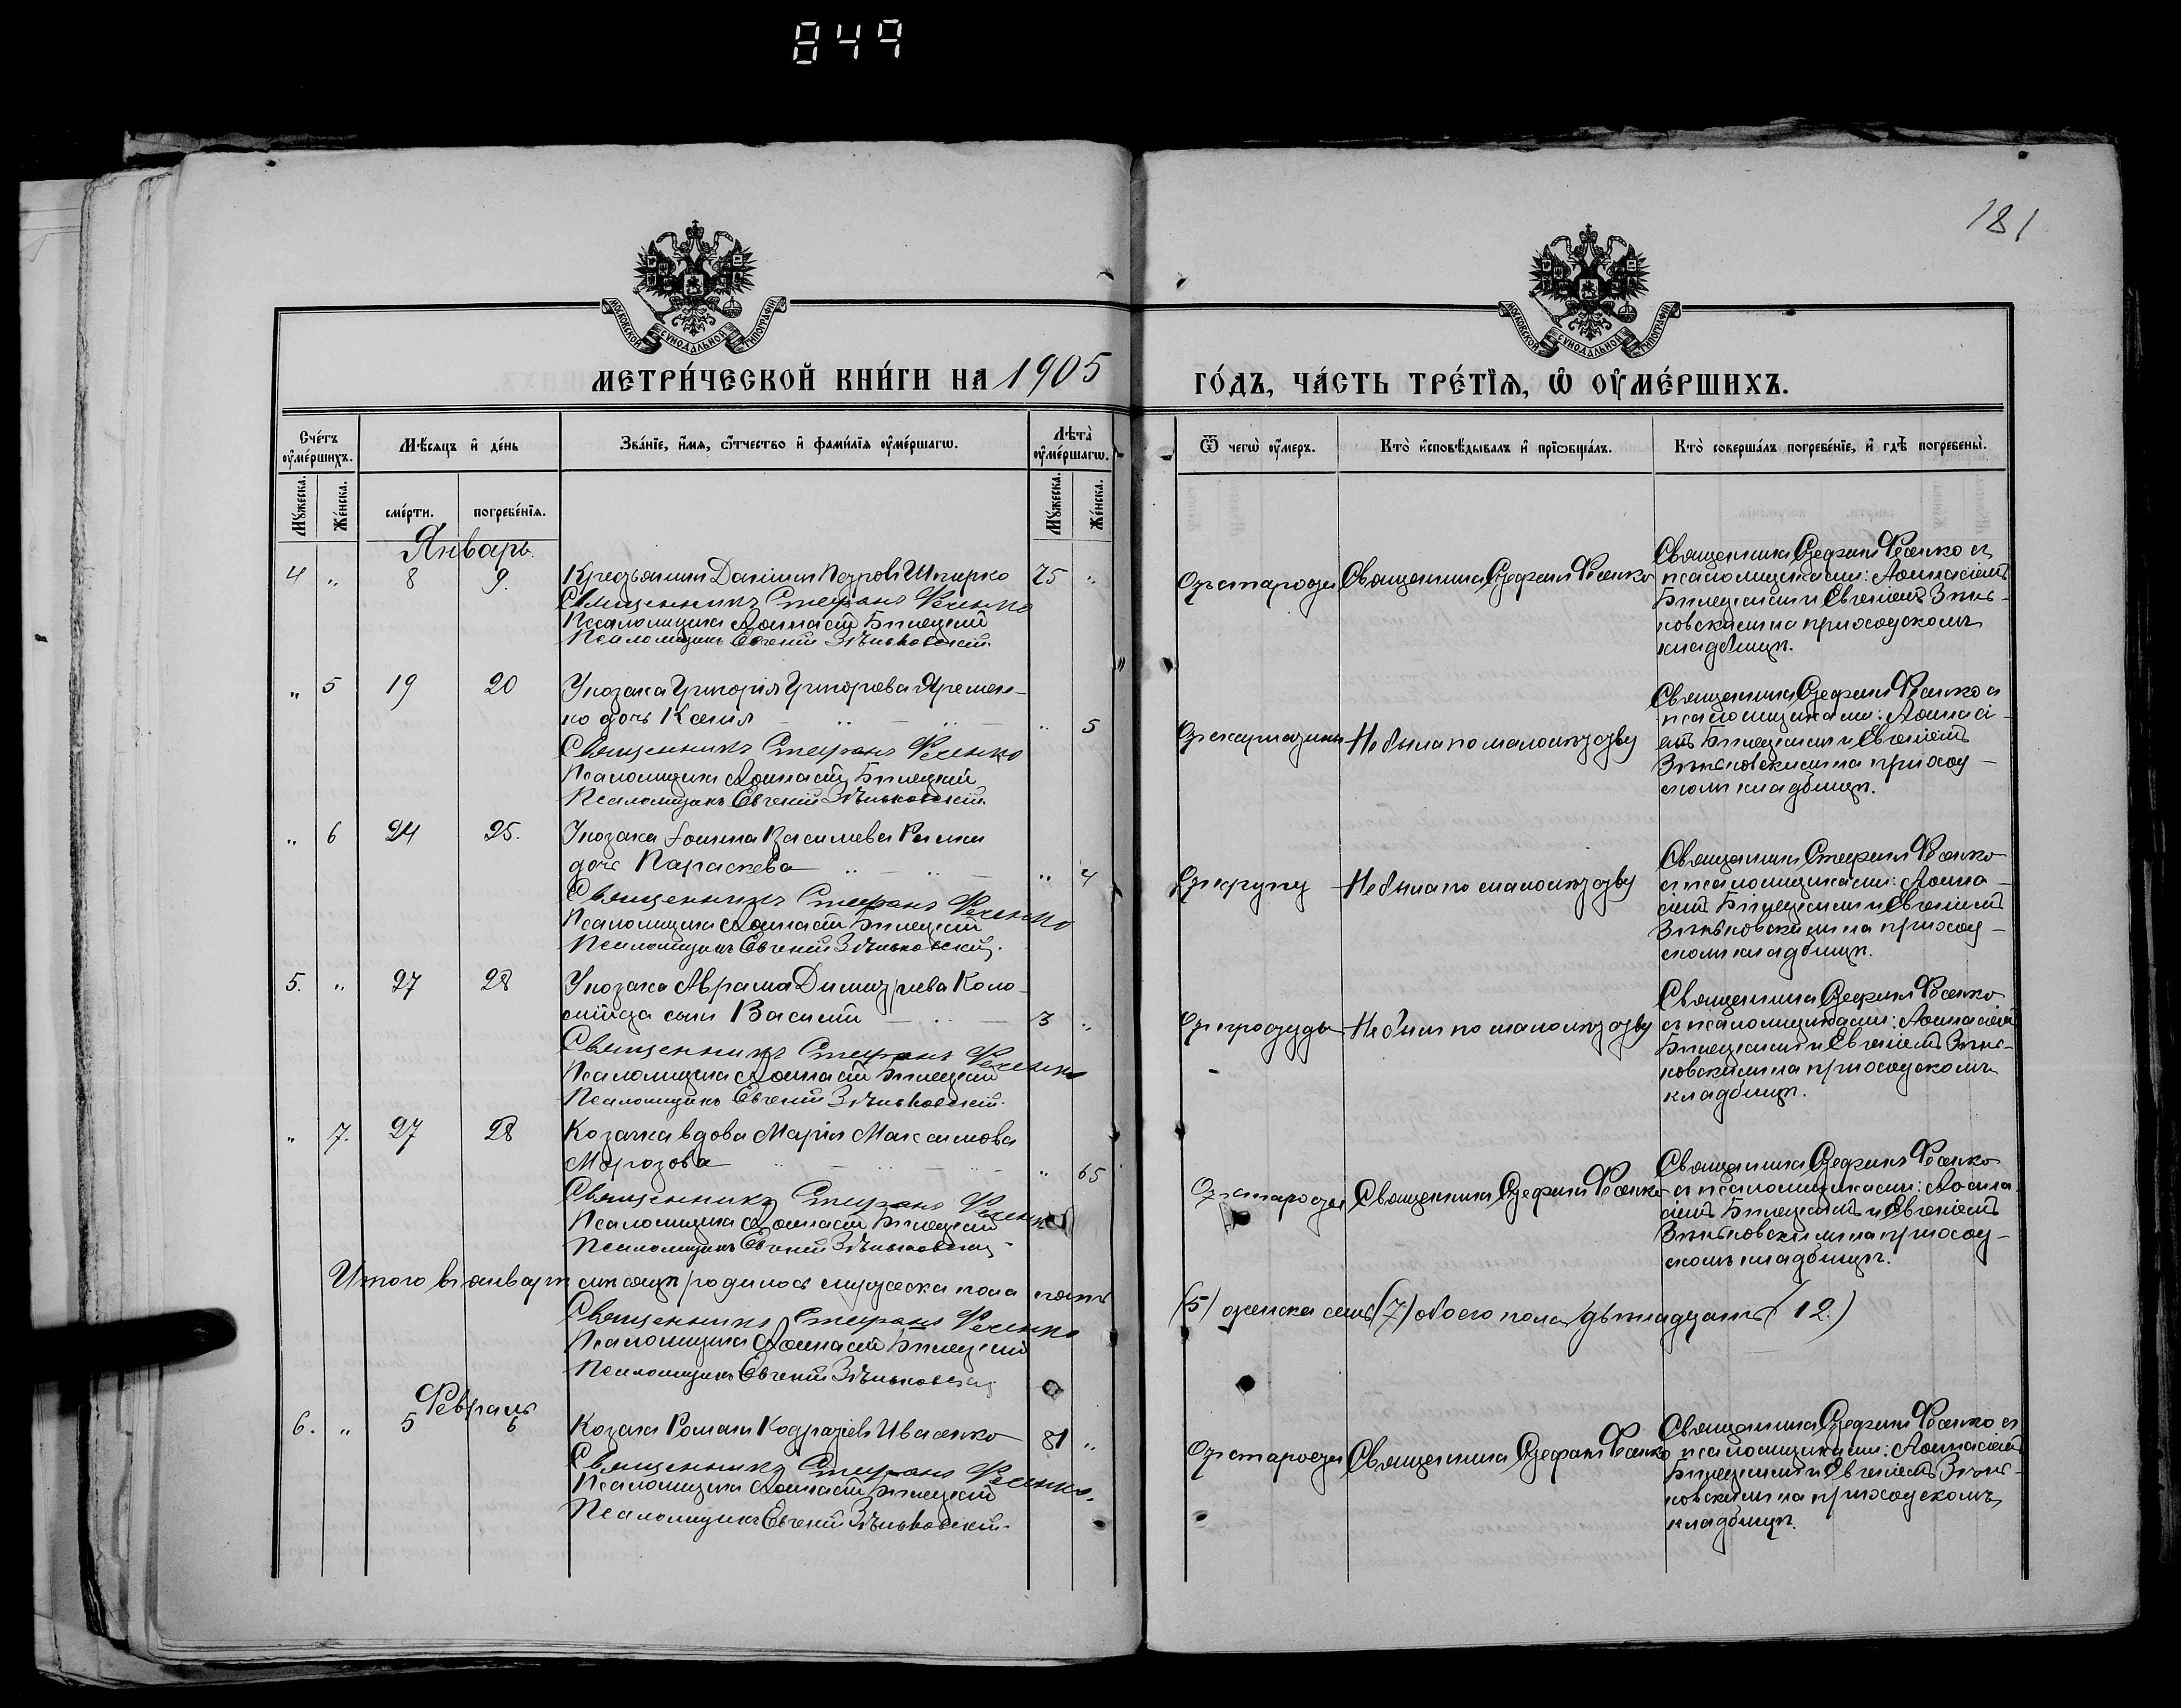 849
181
МОСКОВСКОЙ СѴНОДАЛЬНОЙ ТИПОГРАФІИ
МОСКОВСКОЙ СѴНОДАЛЬНОЙ ТИПОГРАФІИ
МЕТРИ́ЧЕСКОЙ КНИ́ГИ НА 1905
ГО́ДЪ, ЧА́СТЬ ТРЕ́ТЇѦ, Ѡ҆ ОУ҆МЕ́РШИХЪ.
Сче́тъ оу҆ме́ршихъ.
Мѣ́сѧцъ и҆ де́нь
Зва́нїе, и҆́мѧ, ѻ҆́тчество и҆ фами́лїѧ оу҆ме́ршагѡ.
Лѣта̀ оу҆ме́ршагѡ.
Ѿ чегѡ̀ оу҆́меръ.
Кто̀ и҆сповѣ́дывалъ и҆ прїѡбща́лъ.
Кто̀ соверша́лъ погребе́нїе, и҆ гдѣ̀ погребены̀.
Мꙋ́жеска.
Же́нска.
сме́рти.
погребе́нїѧ.
Мꙋ́жеска.
Же́нска.
Январь.
4 " 8 9. Крестьянин Даніил Петров Шпирко 75 "
Священникъ Стефанъ Фесенко
Псаломщикъ Аѳанасій Билецкій
Псаломщикъ Евгеній Зѣньковскій.
От старости
Священник Стефан Фесенко
Священник Стефан Фесенко съ
псаломщиками: Аѳанасіемъ
Билецким и Евгеніемъ Зѣнь-
ковским на приходскомъ
кладбищѣ.
" 5 19 20 У козака Григорія Григорьева Яремен-
ко дочь Ксенія " 5
Священникъ Стефанъ Фесенко
Псаломщикъ Аѳанасій Билецкій
Псаломщикъ Евгеній Зѣньковскій.
От скарлатины
Не была по малолѣтству
Священник Стефан Фесенко съ
псаломщиками: Аѳанасі-
емъ Билецким и Евгеніемъ
Зѣньковским на приход-
ском кладбищѣ.
" 6 24 25. У козака Василиева
дочь Параскева " 4
Священникъ Стефанъ Фесенко
Псаломщикъ Аѳанасій Билецкій
Псаломщикъ Евгеній Зѣньковскій.
От крупу
Не была по малолѣтству
Священник Стефан Фесенко
съ псаломщиками: Аѳана-
сіемъ Билецким и Евгеніемъ
Зѣньковским на приход-
ском кладбищѣ.
5. " 27 28 У козака Аврама Димитріева Коло-
мійца сын Василій 3 "
Священникъ Стефанъ Фесенко
Псаломщикъ Аѳанасій Билецкій
Псаломщикъ Евгеній Зѣньковскій.
От простуды
Не был по малолѣтству
Священник Стефан Фесенко
съ псаломщиками: Аѳанасіемъ
Билецким и Евгеніемъ Зѣнь-
ковским на приходскомъ
кладбищѣ.
" 7. 27 28 Козачка вдова Марія Максимова
Морозова " 65
Священникъ Стефанъ Фесенко
Псаломщикъ Аѳанасій Билецкій
Псаломщикъ Евгеній Зѣньковскій
От старости
Священник Стефан Фесенко
Священник Стефан Фесенко
съ псаломщиками: Аѳана
сіемъ Билецкимъ и Евгеніемъ
Зѣньковским на приход-
скомъ кладбищѣ.
Итого въ январѣ мѣсяцѣ родилось мужеска пола пять
(5) женска семь (7) обоего пола двѣнадцать (12.)
Священникъ Стефанъ Фесенко
Псаломщикъ Аѳанасій Билецкій
Псаломщикъ Евгеній Зѣньковскій
Февраль
6. " 5 6 Козак Роман Кодратіев Ивасенко 81 "
Священникъ Стефанъ Фесенко.
Псаломщикъ Аѳанасій Билецкій
Псаломщикъ Евгеній Зѣньковскій.
От старости
Священник Стефан Фесенко
Священник Стефан Фесенко съ
псаломщиками: Аѳанасіемъ
Билецким и Евгеніемъ Зѣнь-
ковским на приходскомъ
кладбищѣ.